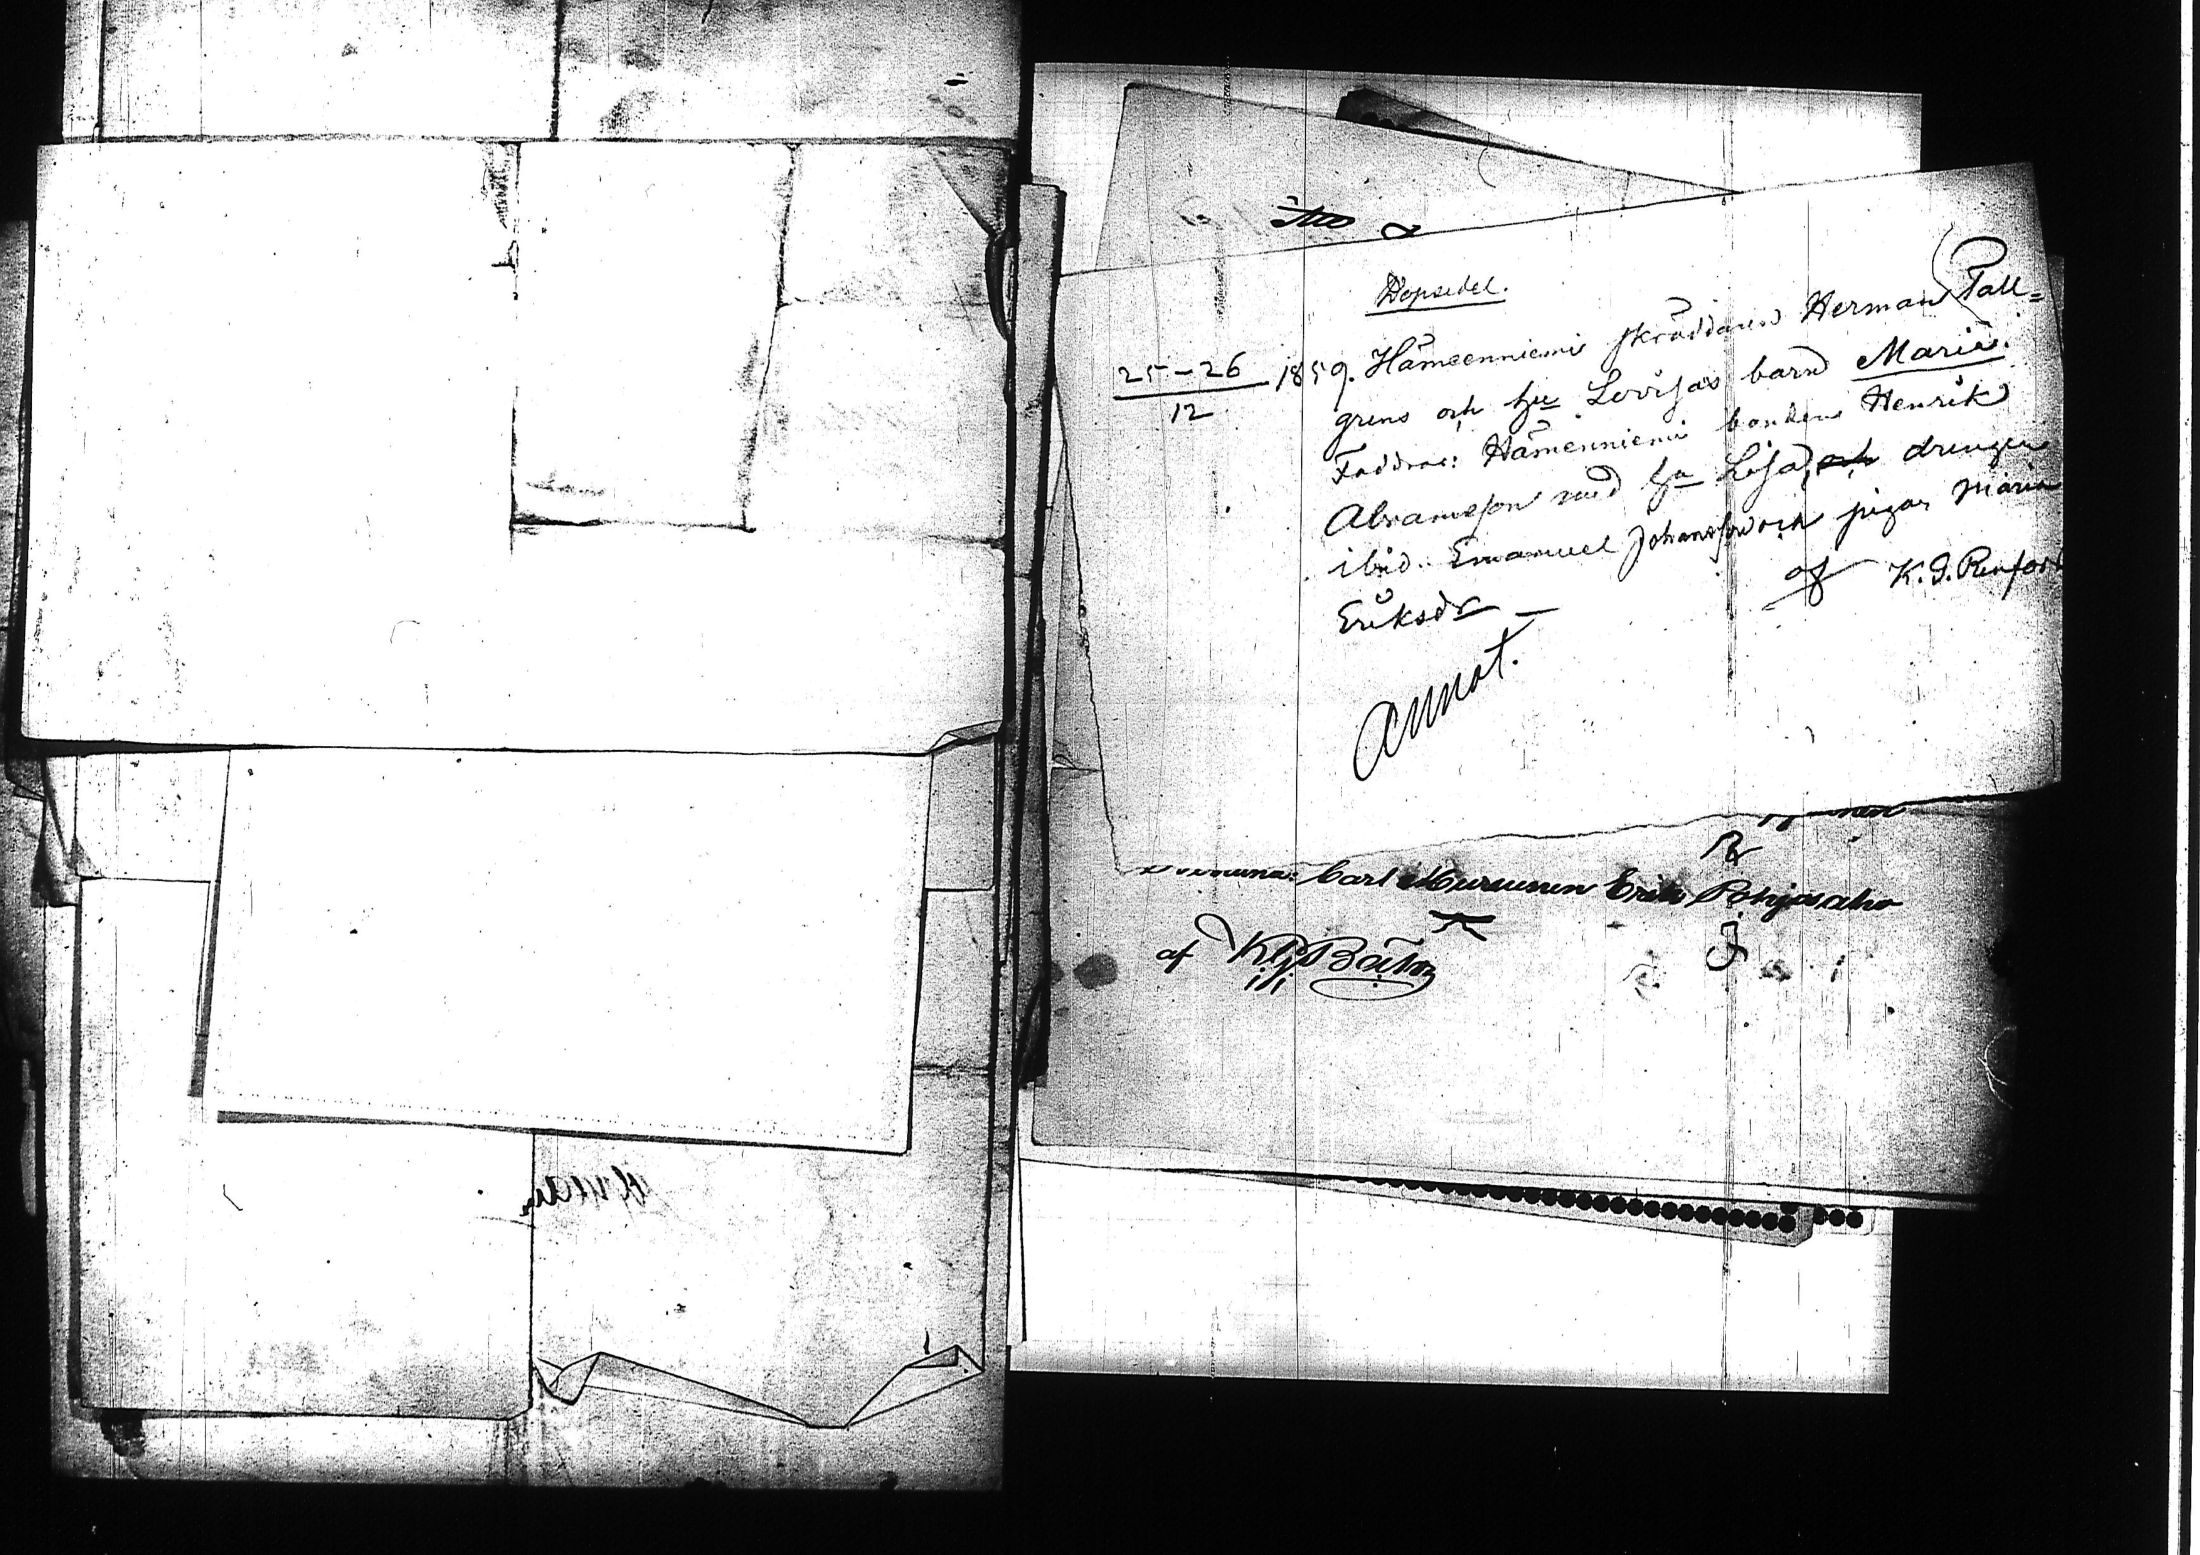 Döpsedel.
25-26/12 1859. Hämeenniemi skräddaren Herman Tall=
grens och hu Lovisas barn Maria.
Faddrar: Hämenniemi bonden Henrik
Abramsson med hu Lisa, och drengen
ibid. Emanuel Johansson och pigan Maria
Eriksdr
af K. G. Renfors
Annot.
Carl Mursunen Erik Pohjasaho
af